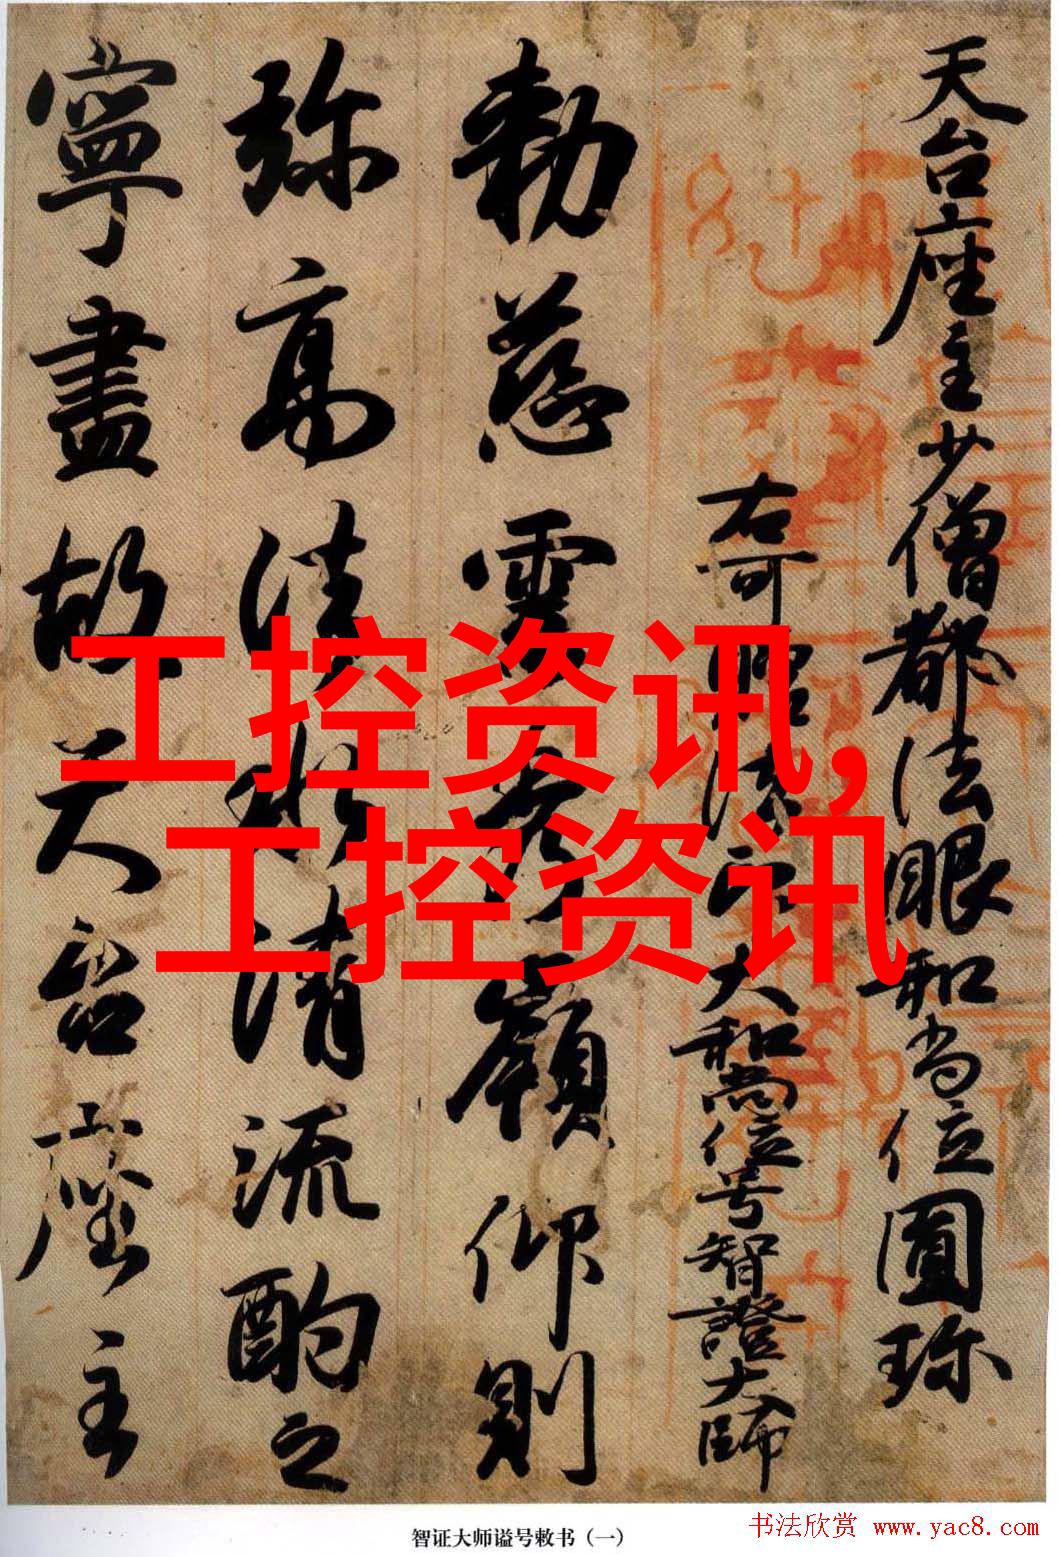 天台座主少僧都法眼和尚位圓珍
右可贈法印大和尚位号智證大師
勅慈雲秀嶺仰則
弥高法水清流酌之
寧盡故天台座主
工控资讯,
工控资讯
智证大师谥号敕书（一）
书法欣赏 www.yac8.com